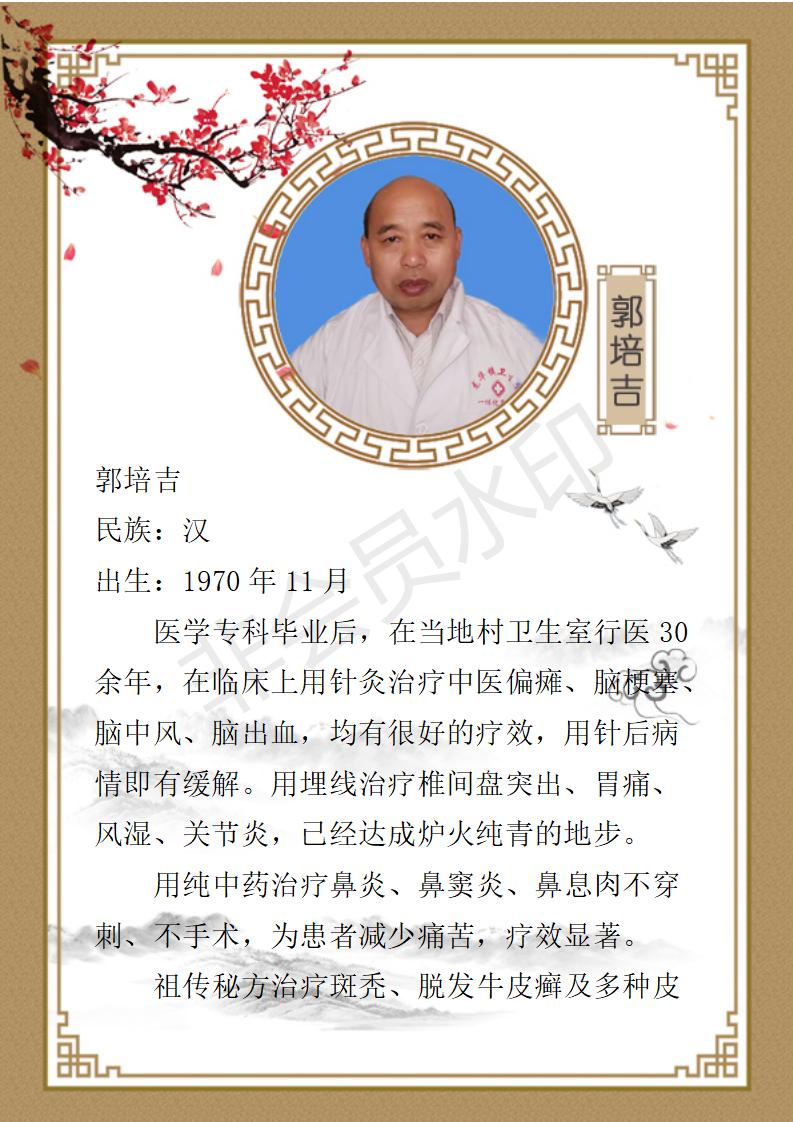 郭培吉
郭培吉
民族：汉
出生：1970年11月
医学专科毕业后，在当地村卫生室行医30
余年，在临床上用针灸治疗中医偏瘫、脑梗塞、
脑中风、脑出血，均有很好的疗效，用针后病
情即有缓解。用埋线治疗椎间盘突出、胃痛、
风湿、关节炎，已经达成炉火纯青的地步。
用纯中药治疗鼻炎、鼻窦炎、鼻息肉不穿
刺、不手术，为患者减少痛苦，疗效显著。
祖传秘方治疗斑秃、脱发牛皮癣及多种皮
非会员水印